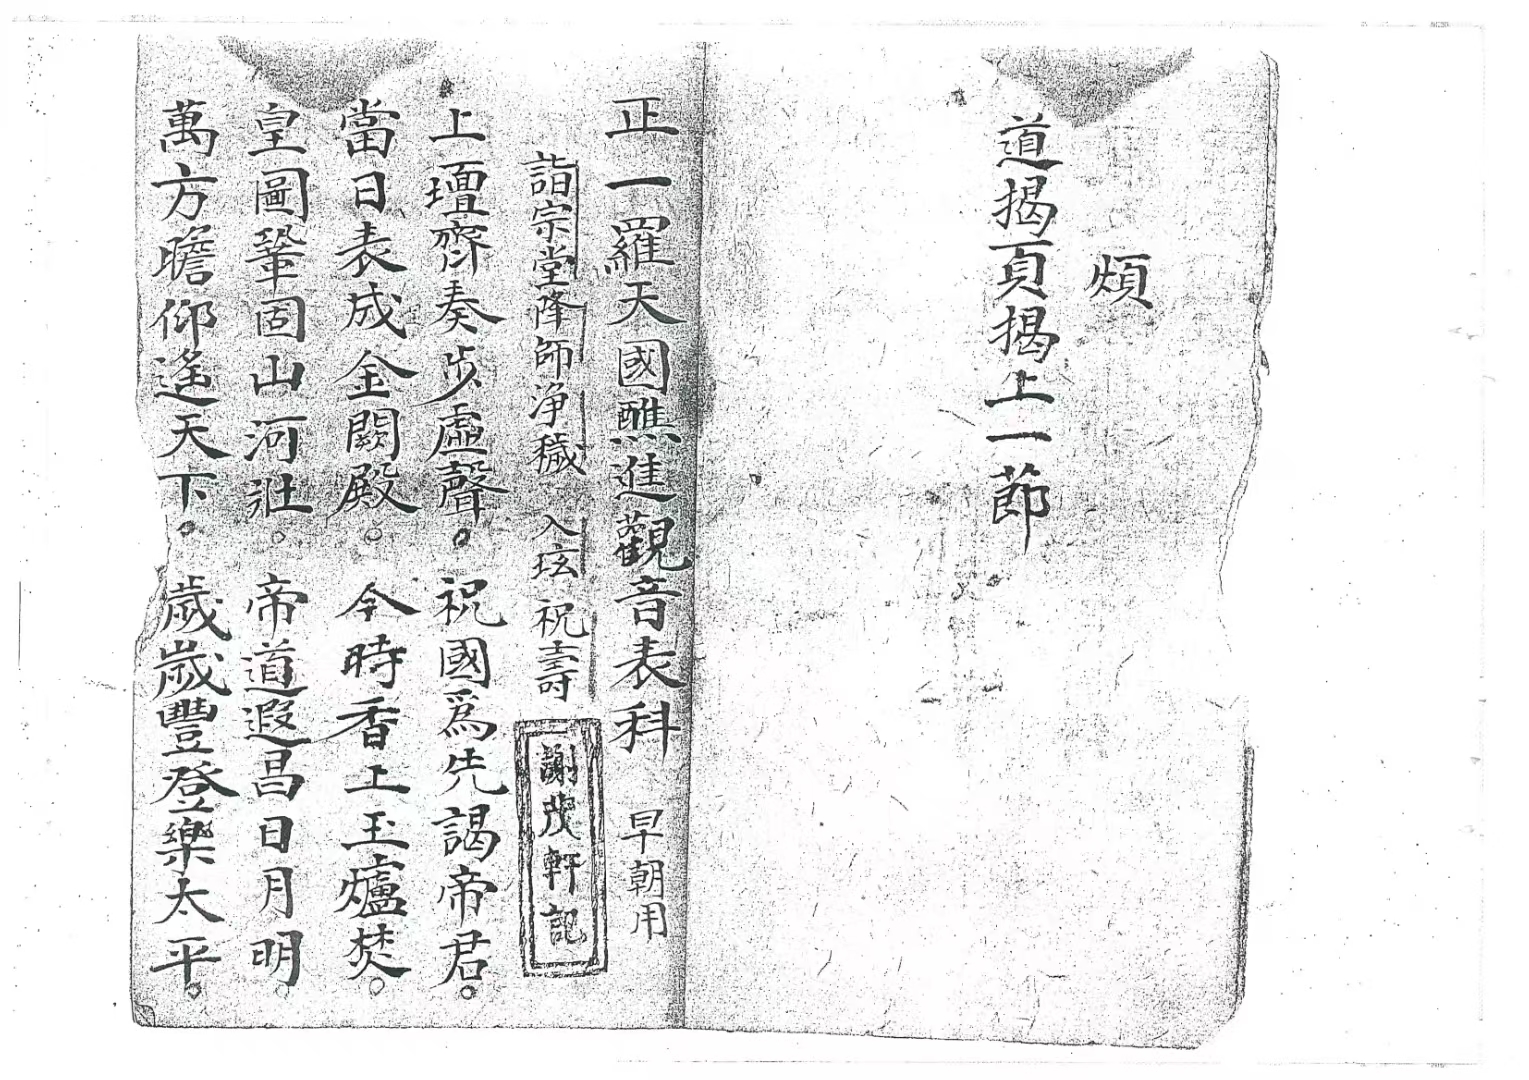 煩
道揭頁揭上一節
正一羅天國醮進觀音表科 早朝用
詣宗堂降師净穢 入玹 祝壽
謝茂軒記
上壇齊奏步虛聲。 祝國爲先謁帝君。
當日表成金闕殿。 今時香上玉爐焚。
皇圖鞏固山河壯。 帝道遐昌日月明。
萬方瞻仰遙天下。 歲歲豐登樂太平。